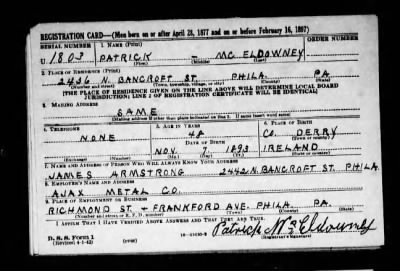 REGISTRATION CARD—(Men born on or after April 28, 1877 and on or before February 16, 1897)
SERIAL NUMBER
1. NAME (Print)
ORDER NUMBER
U 1803
PATRICK - MC ELDOWNEY
(First) (Middle) (Last)
2. PLACE OF RESIDENCE (Print)
2436 N. BANCROFT ST. PHILA. PA.
(Number and street) (Town, township, village, or city) (County) (State)
[THE PLACE OF RESIDENCE GIVEN ON THE LINE ABOVE WILL DETERMINE LOCAL BOARD
JURISDICTION; LINE 2 OF REGISTRATION CERTIFICATE WILL BE IDENTICAL]
3. MAILING ADDRESS
SAME
[Mailing address if other than place indicated on line 2. If same insert word same]
4. TELEPHONE
5. AGE IN YEARS
6. PLACE OF BIRTH
NONE
48
CO. DERRY
DATE OF BIRTH
(Town or county)
NOV. 7 1893
IRELAND
(Exchange) (Number)
(Mo.) (Day) (Yr.)
(State or country)
7. NAME AND ADDRESS OF PERSON WHO WILL ALWAYS KNOW YOUR ADDRESS
JAMES ARMSTRONG 2442 N. BANCROFT ST. PHILA.
8. EMPLOYER'S NAME AND ADDRESS
AJAX METAL CO.
9. PLACE OF EMPLOYMENT OR BUSINESS
RICHMOND ST. + FRANKFORD AVE. PHILA. PA.
(Number and street or R. F. D. number) (Town) (County) (State)
I AFFIRM THAT I HAVE VERIFIED ABOVE ANSWERS AND THAT THEY ARE TRUE.
D. S. S. Form 1
(Revised 4-1-42) (over)
Patrick Mc Eldowney